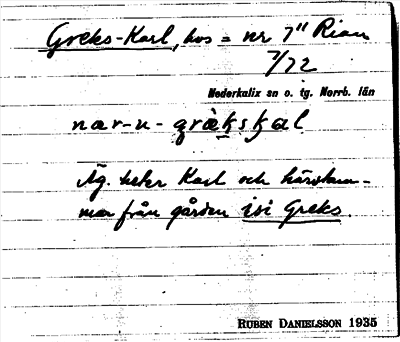 Greks-Karl, hos = nr 7" Rian
7/72
Nederkalix sn o. tg. Norrb. län
nær-n- grækskal
Äg. heter Karl och härstam-
mar från gården isi Greks.
RUBEN DANIELSSON 1935